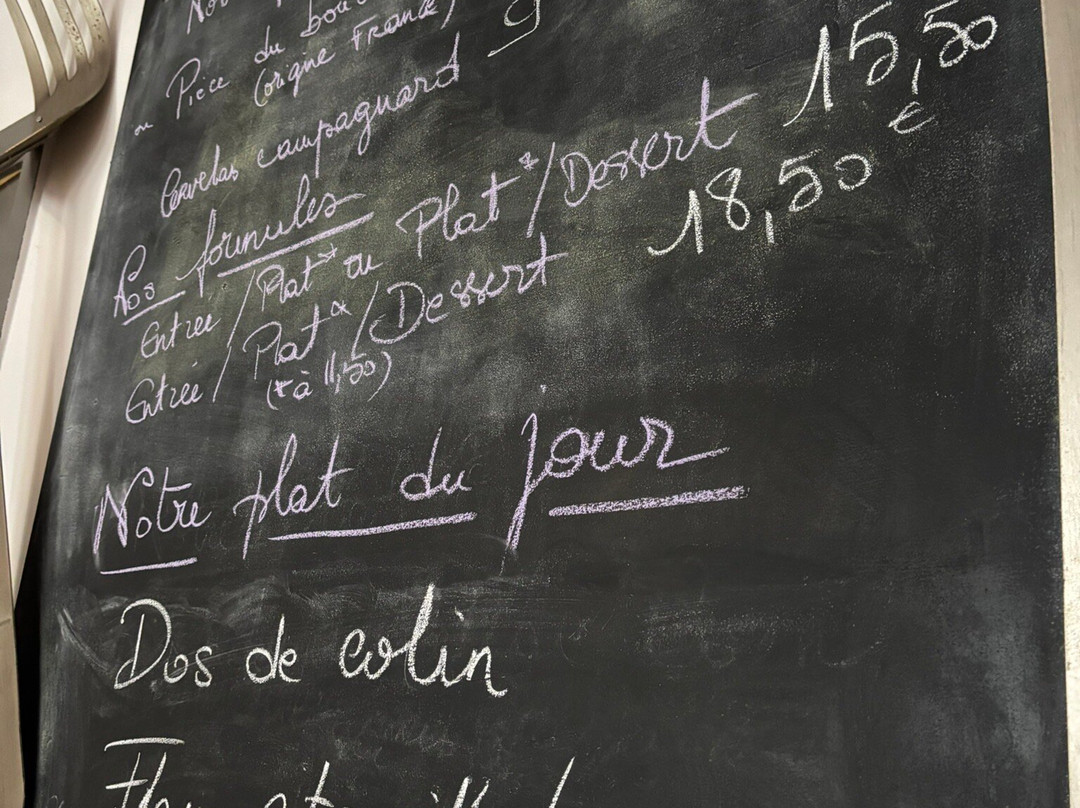 ou Pièce du
(origine France)
Cervelas campagnard 9
Nos formules
Entrée / Plat* ou Plat* / Dessert 15,50 €
Entrée / Plat* / Dessert 18,50
(* à 11,50)
Notre plat du jour
Dos de colin